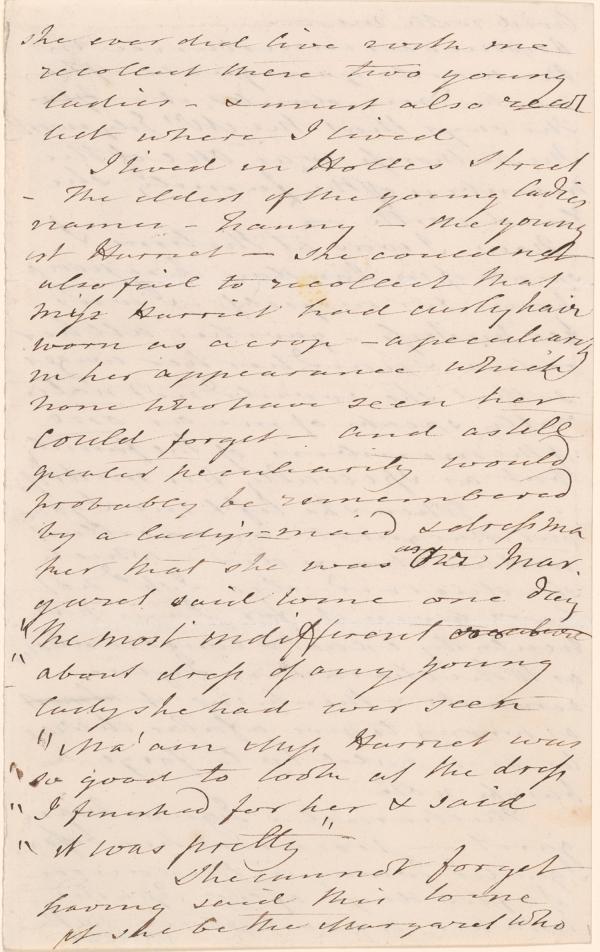 she ever did live with me
recollect these two young
ladies - & must also recol
lect where I lived
I lived in Holles Street
- The eldest of the young ladies
names - Fanny - the young
est Harriet - she could not
also fail to recollect that
Miss Harriet had curly hair
worn as a crop - a peculiarity
in her appearance which
none who have seen her
could forget - and a still
greater peculiarity would
probably be remembered
by a lady's=maid & dressma
ker that she was as Our Mar
garet said to me one day
"the most indifferent
" about dress of any young
lady she had ever seen
" Ma'am Miss Harriet was
" so good to look at the dress
" I finished for her & said
" it was pretty"
She cannot forget
having said this to me
if she be the Margaret who